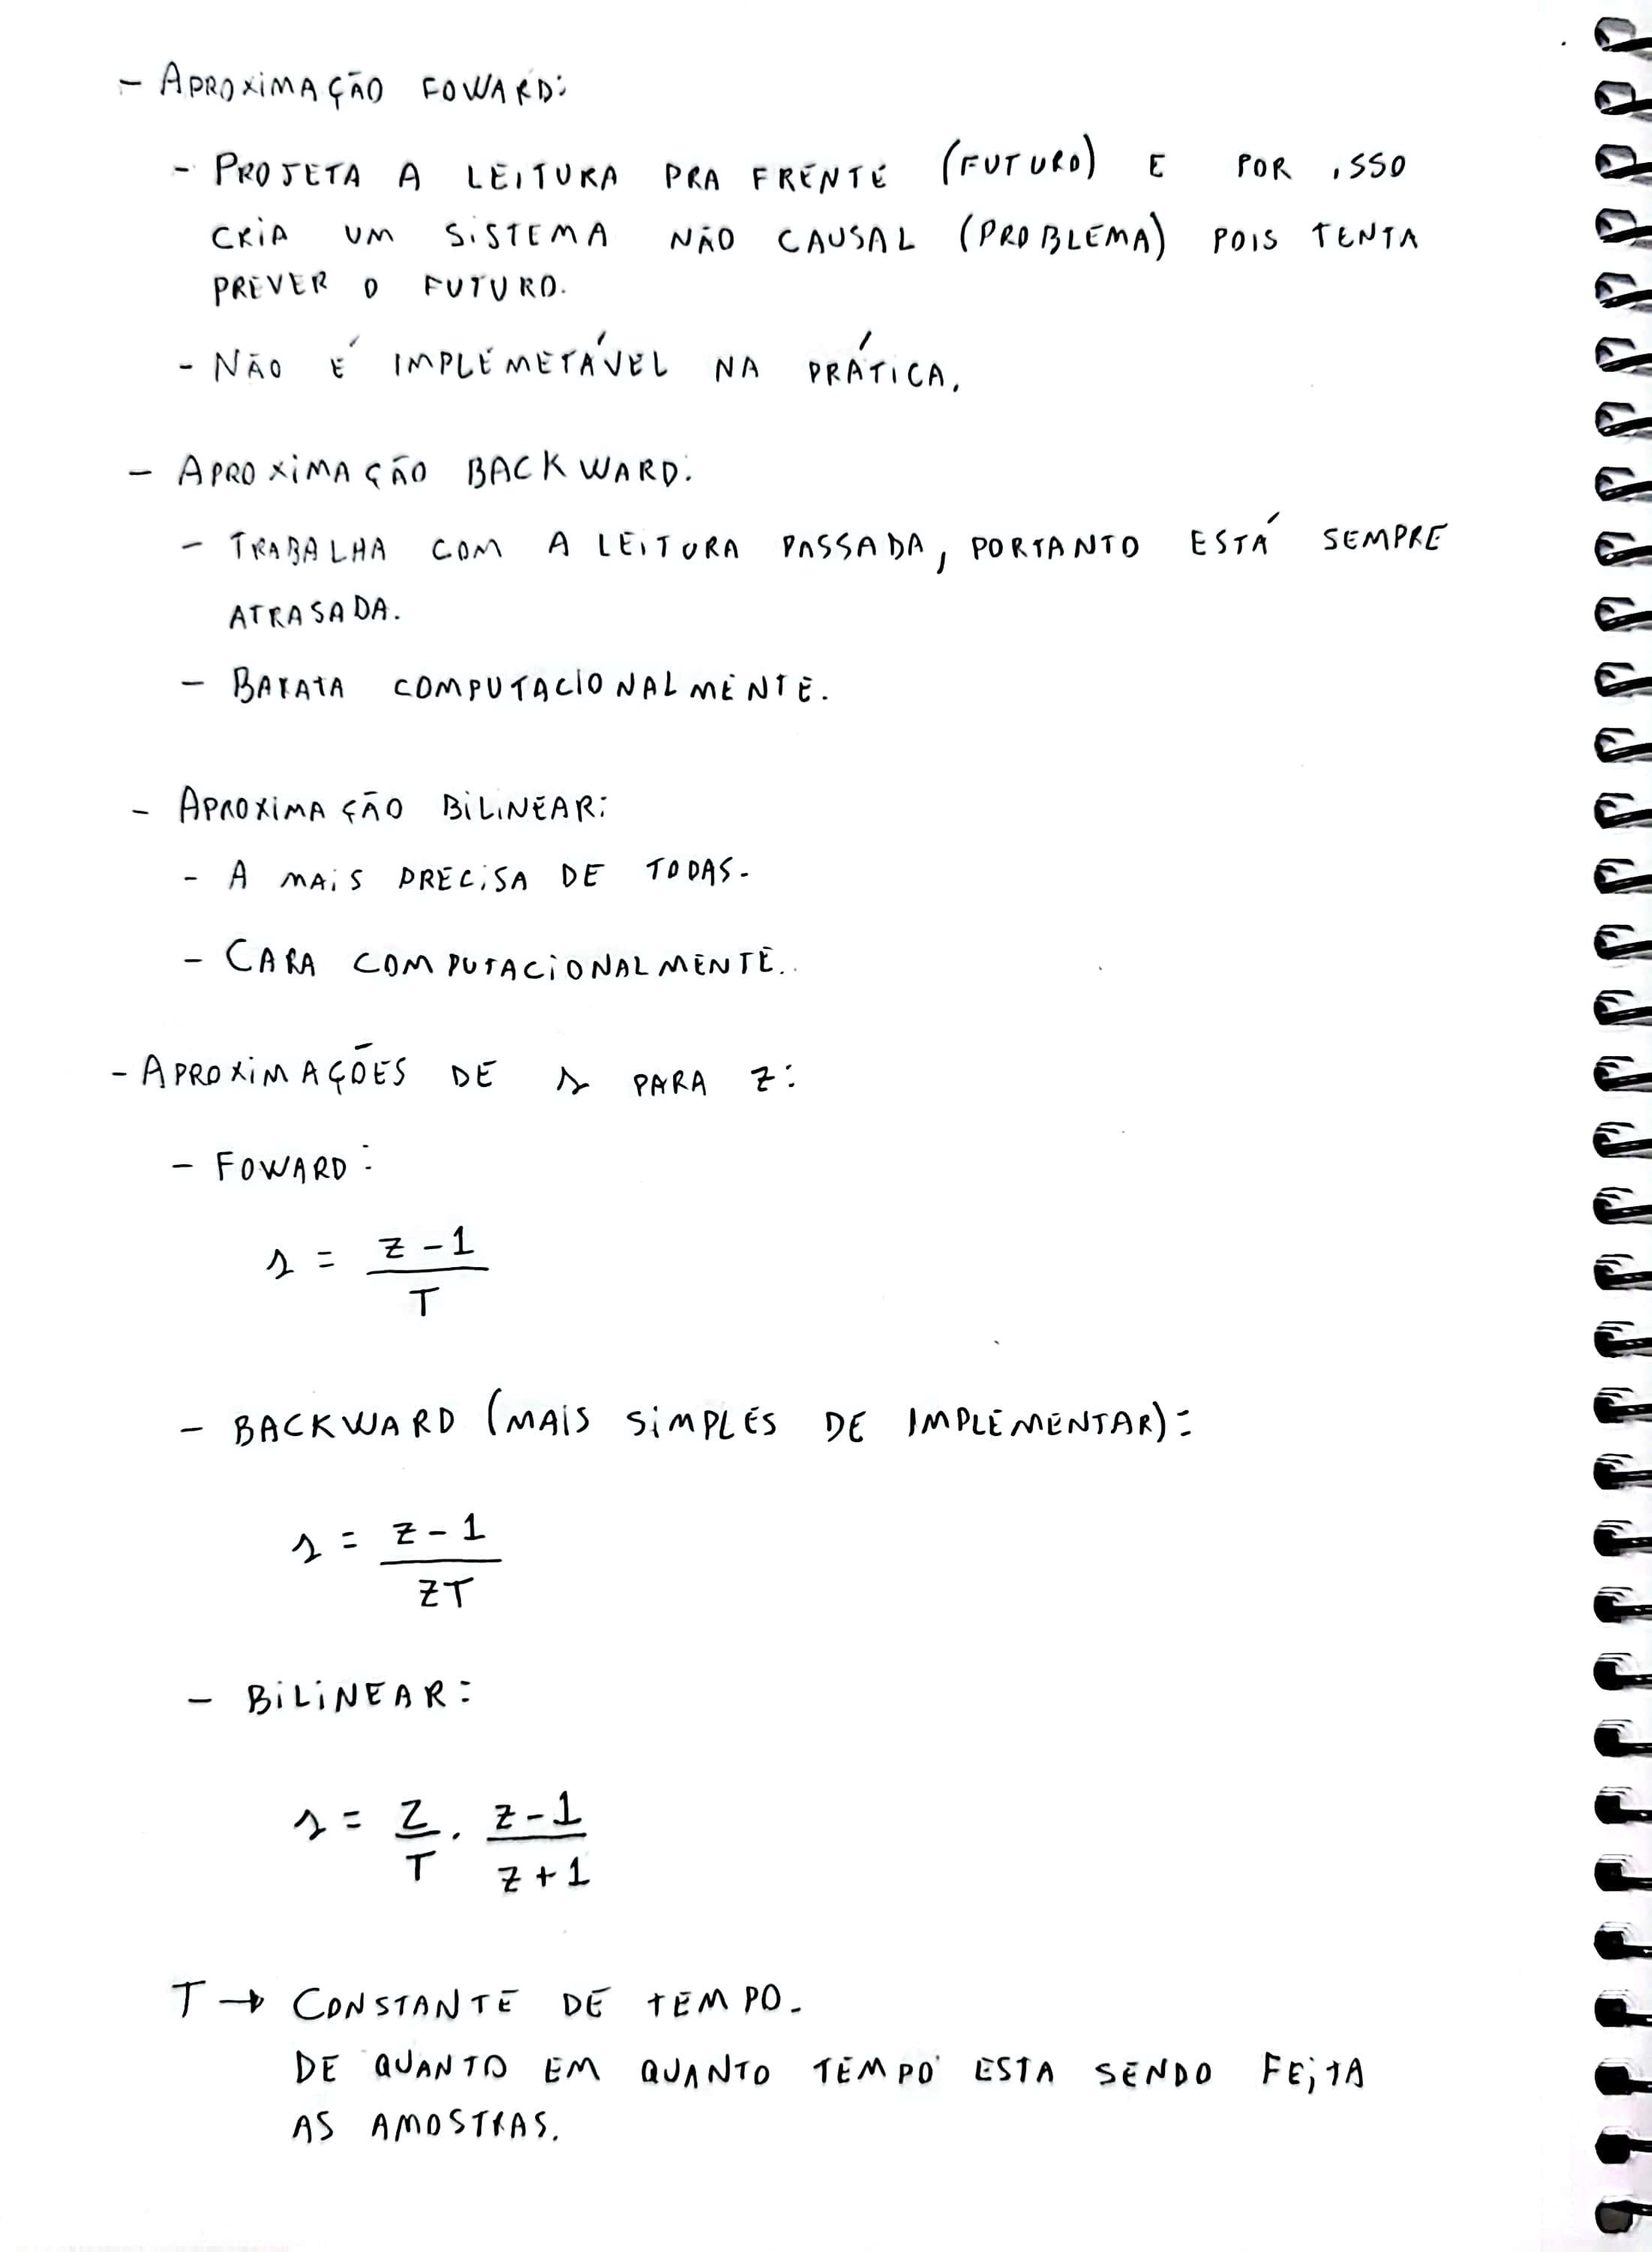 - APROXIMAÇÃO FOWARD:
- PROJETA A LEITURA PRA FRENTE (FUTURO) E POR ISSO
CRIA UM SISTEMA NÃO CAUSAL (PROBLEMA) POIS TENTA
PREVER O FUTURO.
- NÃO É IMPLEMETÁVEL NA PRÁTICA.
- APROXIMAÇÃO BACKWARD:
- TRABALHA COM A LEITURA PASSADA, PORTANTO ESTÁ SEMPRE
ATRASADA.
- BARATA COMPUTACIONALMENTE.
- APROXIMAÇÃO BILINEAR:
- A MAIS PRECISA DE TODAS.
- CARA COMPUTACIONALMENTE.
- APROXIMAÇÕES DE s PARA z:
- FOWARD:
s = (z - 1) / T
- BACKWARD (MAIS SIMPLES DE IMPLEMENTAR):
s = (z - 1) / (zT)
- BILINEAR:
s = 2/T . (z - 1) / (z + 1)
T → CONSTANTE DE TEMPO.
DE QUANTO EM QUANTO TEMPO ESTA SENDO FEITA
AS AMOSTRAS.